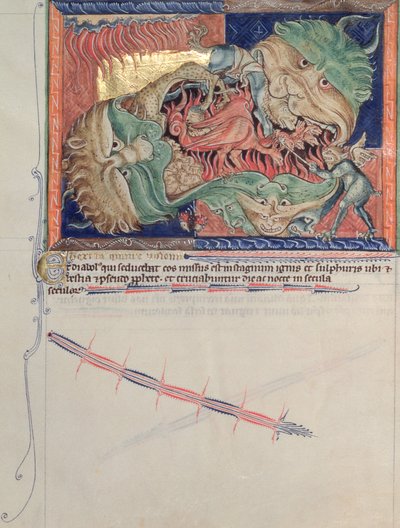 Et diabol' qui seducebat eos missus est in stagnum ignis et sulphuris ubi et
bestia et pseudo pphete. et cruciabuntur die ac nocte in secula
seculorum